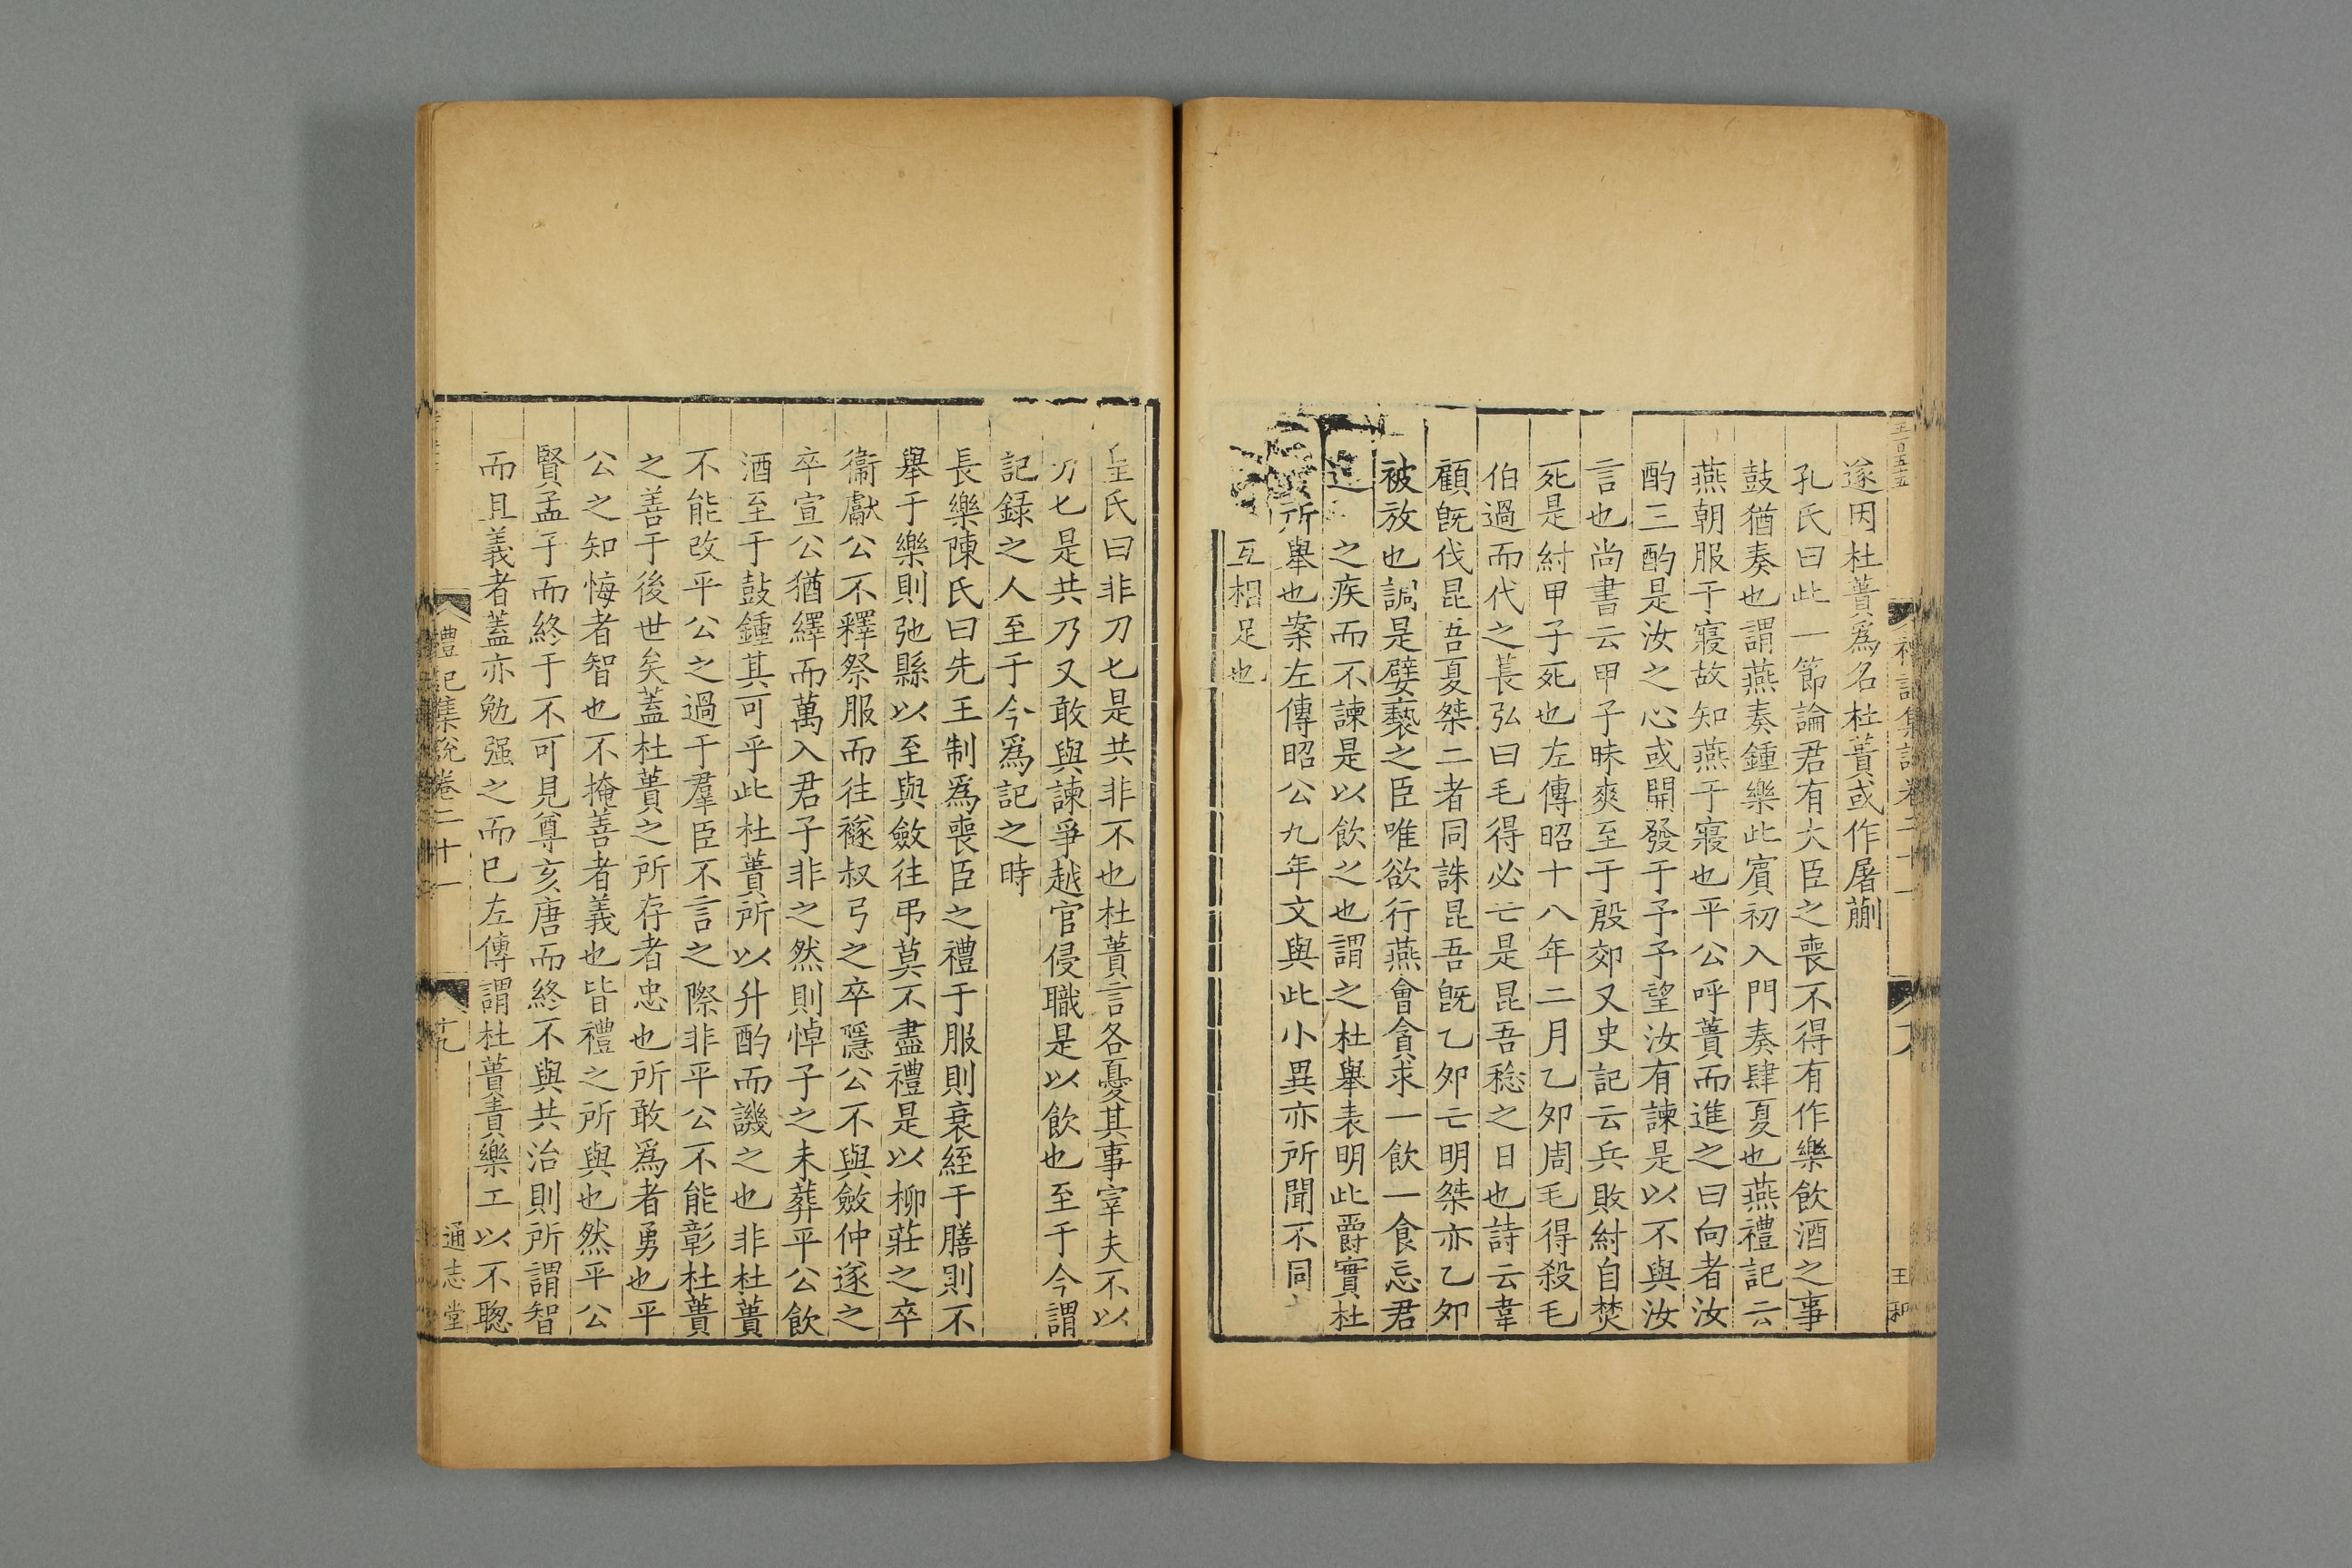 遂因杜蕢爲名杜蕢或作屠蒯
孔氏曰此一節論君有大臣之喪不得有作樂飲酒之事
鼓猶奏也謂燕奏鍾樂此賓初入門奏肆夏也燕禮記云
燕朝服于寢故知燕于寢也平公呼蕢而進之曰向者汝
酌三酌是汝之心或開發于予予望汝有諫是以不與汝
言也尚書云甲子昧爽至于殷郊又史記云兵敗紂自焚
死是紂甲子死也左傳昭十八年二月乙夘周毛得殺毛
伯過而代之萇弘曰毛得必亡是昆吾稔之日也詩云韋
顧旣伐昆吾夏桀二者同誅昆吾旣乙夘亡明桀亦乙夘
被放也調是嬖褻之臣唯欲行燕會貪求一飲一食忘君
之疾而不諫是以飲之也謂之杜舉表明此爵實杜
所舉也案左傳昭公九年文與此小異亦所聞不同
互相足也
五百五五
禮記集說卷二十一
王和
皇氏曰非刀匕是共非不也杜蕢言各憂其事宰夫不以
刀匕是共乃又敢與諫爭越官侵職是以飲也至于今謂
記録之人至于今爲記之時
長樂陳氏曰先王制爲喪臣之禮于服則衰絰于膳則不
舉于樂則弛縣以至與斂往弔莫不盡禮是以柳莊之卒
衞獻公不釋祭服而往襚叔弓之卒隱公不與斂仲遂之
卒宣公猶繹而萬入君子非之然則悼子之未葬平公飲
酒至于鼓鍾其可乎此杜蕢所以升酌而譏之也非杜蕢
不能改平公之過于羣臣不言之際非平公不能彰杜蕢
之善于後世矣蓋杜蕢之所存者忠也所敢爲者勇也平
公之知悔者智也不掩善者義也皆禮之所與也然平公
賢孟子而終于不可見尊亥唐而終不與共治則所謂智
而且義者蓋亦勉强之而已左傳謂杜蕢責樂工以不聦
禮記集說卷二十一
十九
通志堂